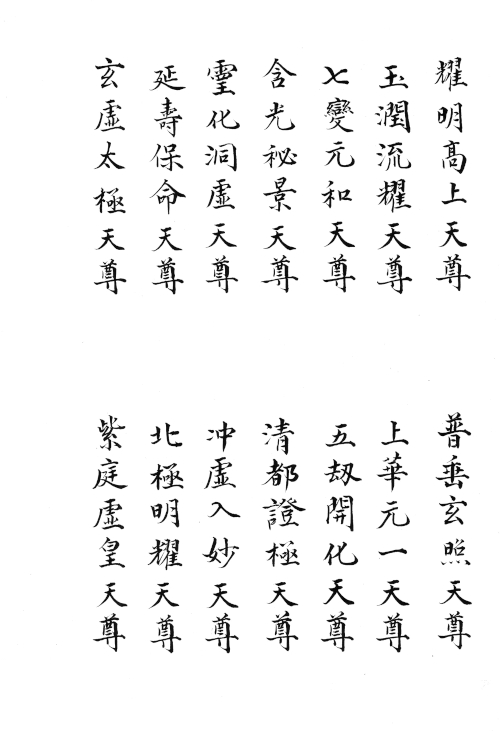 耀明高上天尊
普垂玄照天尊
玉潤流耀天尊
上華元一天尊
七變元和天尊
五劫開化天尊
含光祕景天尊
清都證極天尊
靈化洞虛天尊
冲虛入妙天尊
延壽保命天尊
北極明耀天尊
玄虛太極天尊
紫庭虛皇天尊